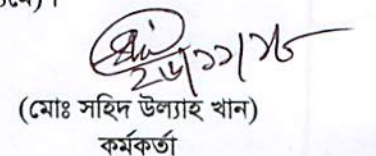 ২৬/১১/১৮
(মোঃ সহিদ উল্যাহ খান)
কর্মকর্তা